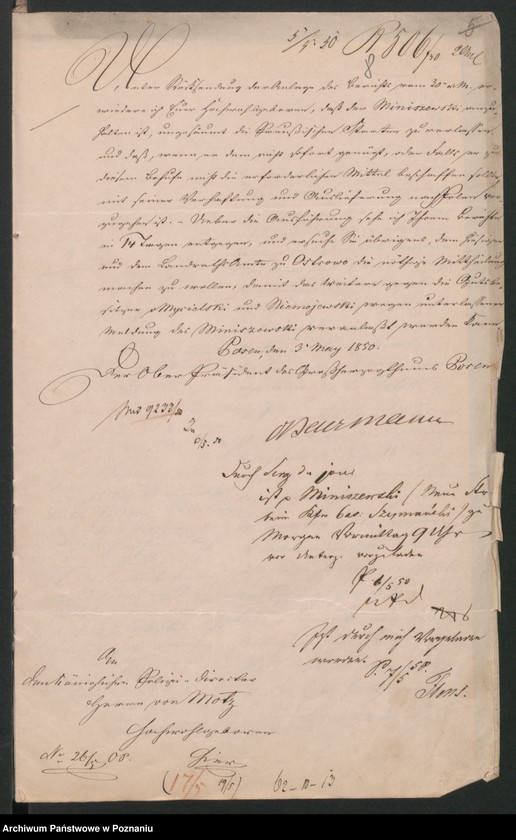 5/5 50 R 506/50
8
5
Unter Rücksendung der Anlage des Berichts vom 20 v. M. er-
wiedere ich Euer Hochwohlgeboren, daß den Miniszewski anzu-
halten ist, ungesäumt die Preußischen Staaten zu verlassen
und daß, wenn er dem nicht sofort genügt, oder falls er zu
diesem Behufe nicht die erforderlichen Mittel beschaffen sollte,
mit seiner Verhaftung und Auslieferung nach Polen vor-
zugehen ist. – Ueber die Ausführung sehe ich Ihrem Berichte
in 14 Tagen entgegen, und ersuche Sie übrigens, dem
und dem Landraths Amte zu Ostrowo die nöthige Mittheilung
machen zu wollen, damit das weitere gegen die Gutsbe-
sitzer v Mycielski und Niemojewski wegen unterlassener
Meldung des Miniszewski veranlaßt werden kann.
Posen, den 3 May 1850.
Der Ober Präsident des Großherzogthums Posen
9233/50
Beurmann
Durch
ist p Miniszewski (
) zu
Morgen Vormittag 9 Uhr
vor vorzuladen
P 6/5 50
Ist durch mich vorgeladen
worden.
P. 7/5 50.
An
den Königlichen Polizei-Director
Herrn von Motz
Hochwohlgeboren
Hier
No 26/5 O P.
(17/5 19/5) 62-II-13
Archiwum Państwowe w Poznaniu